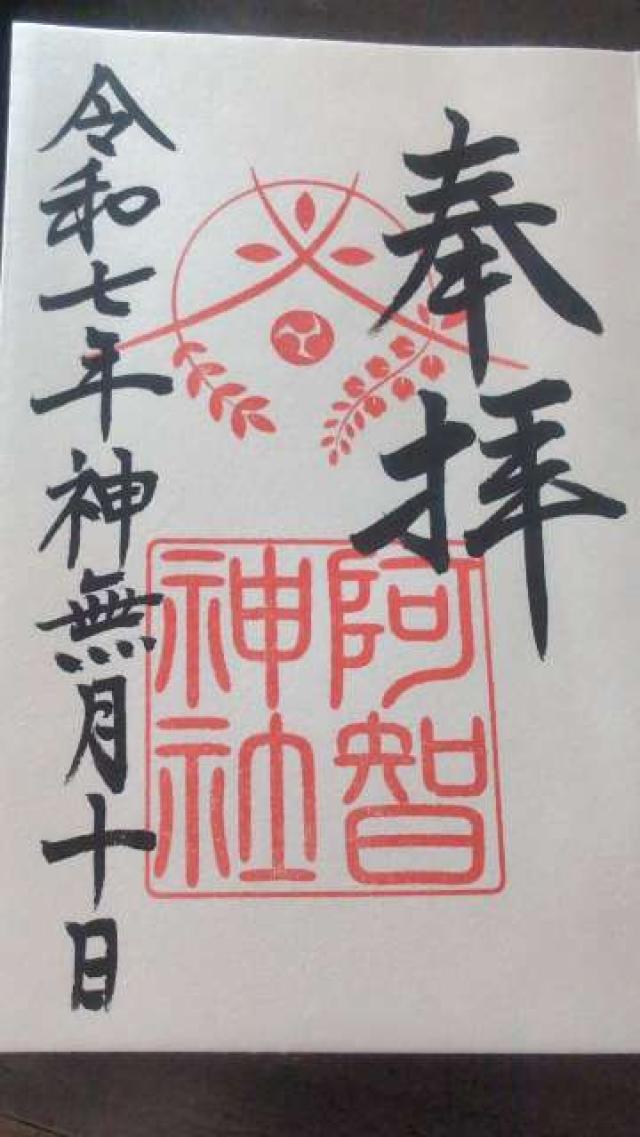 奉拝
阿智
神社
令和七年神無月十日